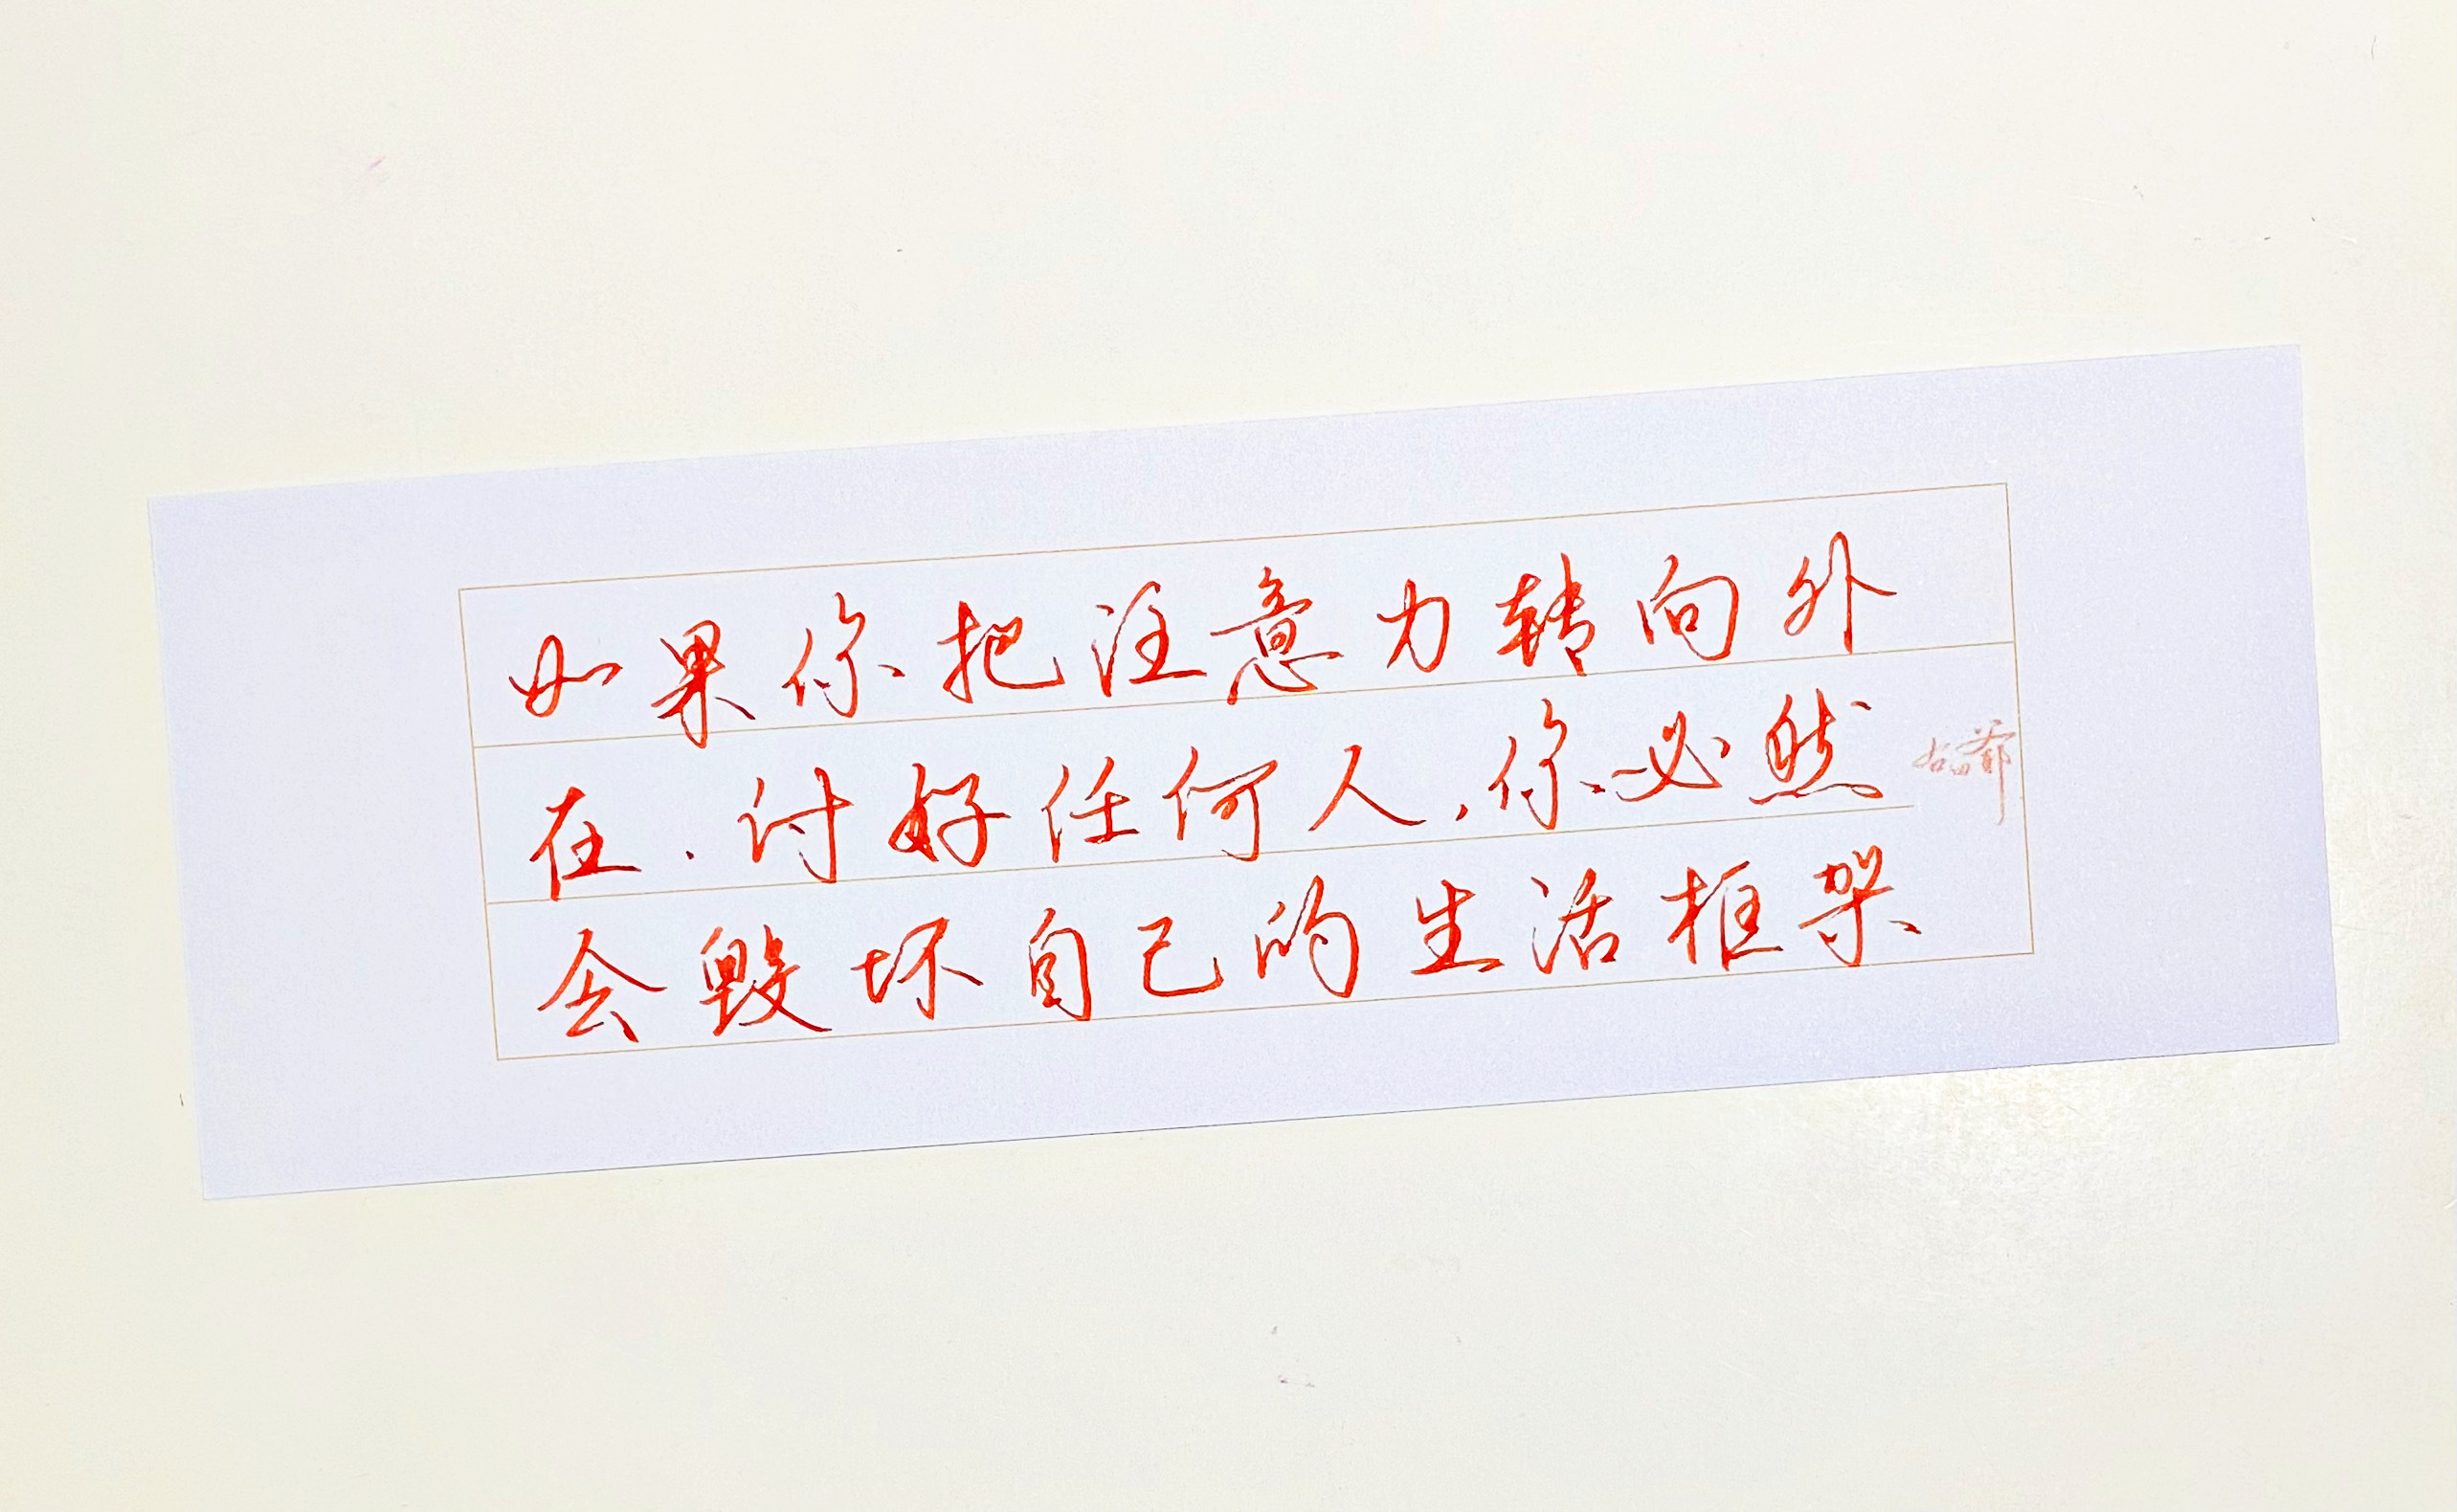 如果你把注意力转向外
在.讨好任何人,你必然
会毁坏自己的生活框架